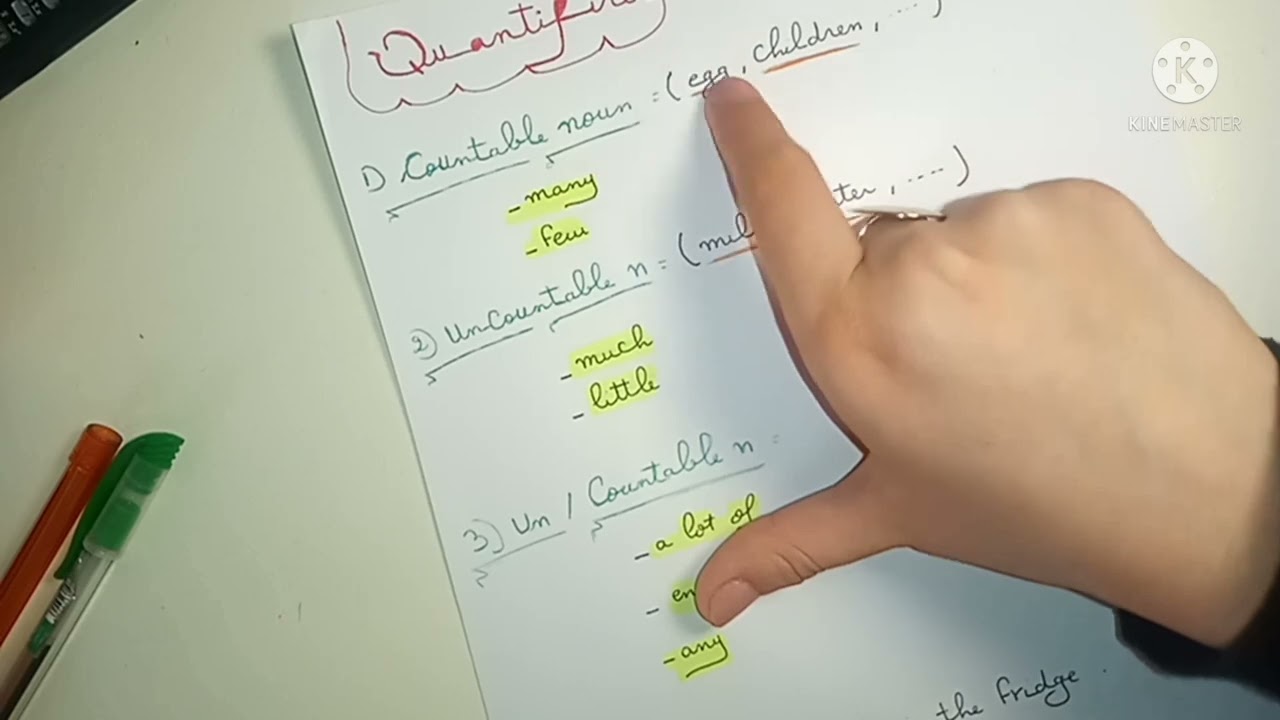 1) Countable noun = (egg, children, ....)
- many
- few
2) UnCountable n = (
- much
- little
3) Un / Countable n =
- a lot of
- any
the fridge.
KINEMASTER